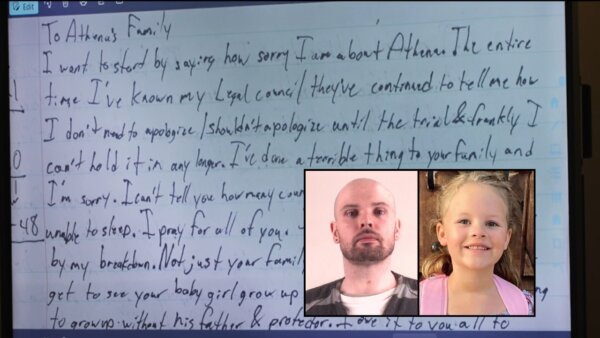 Edit
To Athena's Family
I want to start by saying how sorry I am about Athena. The entire
time I've known my Legal council they've continued to tell me how
I don't need to apologize/shouldn't apologize until the trial & frankly I
can't hold it in any longer. I've done a terrible thing to your family and
I'm sorry. I can't tell you how many coun
unable to sleep. I pray for all of you.
by my breakdown. Not just your famil
get to see your baby girl grow up
ng
to grow up without his father & protector. I owe it to you all to
0
-48